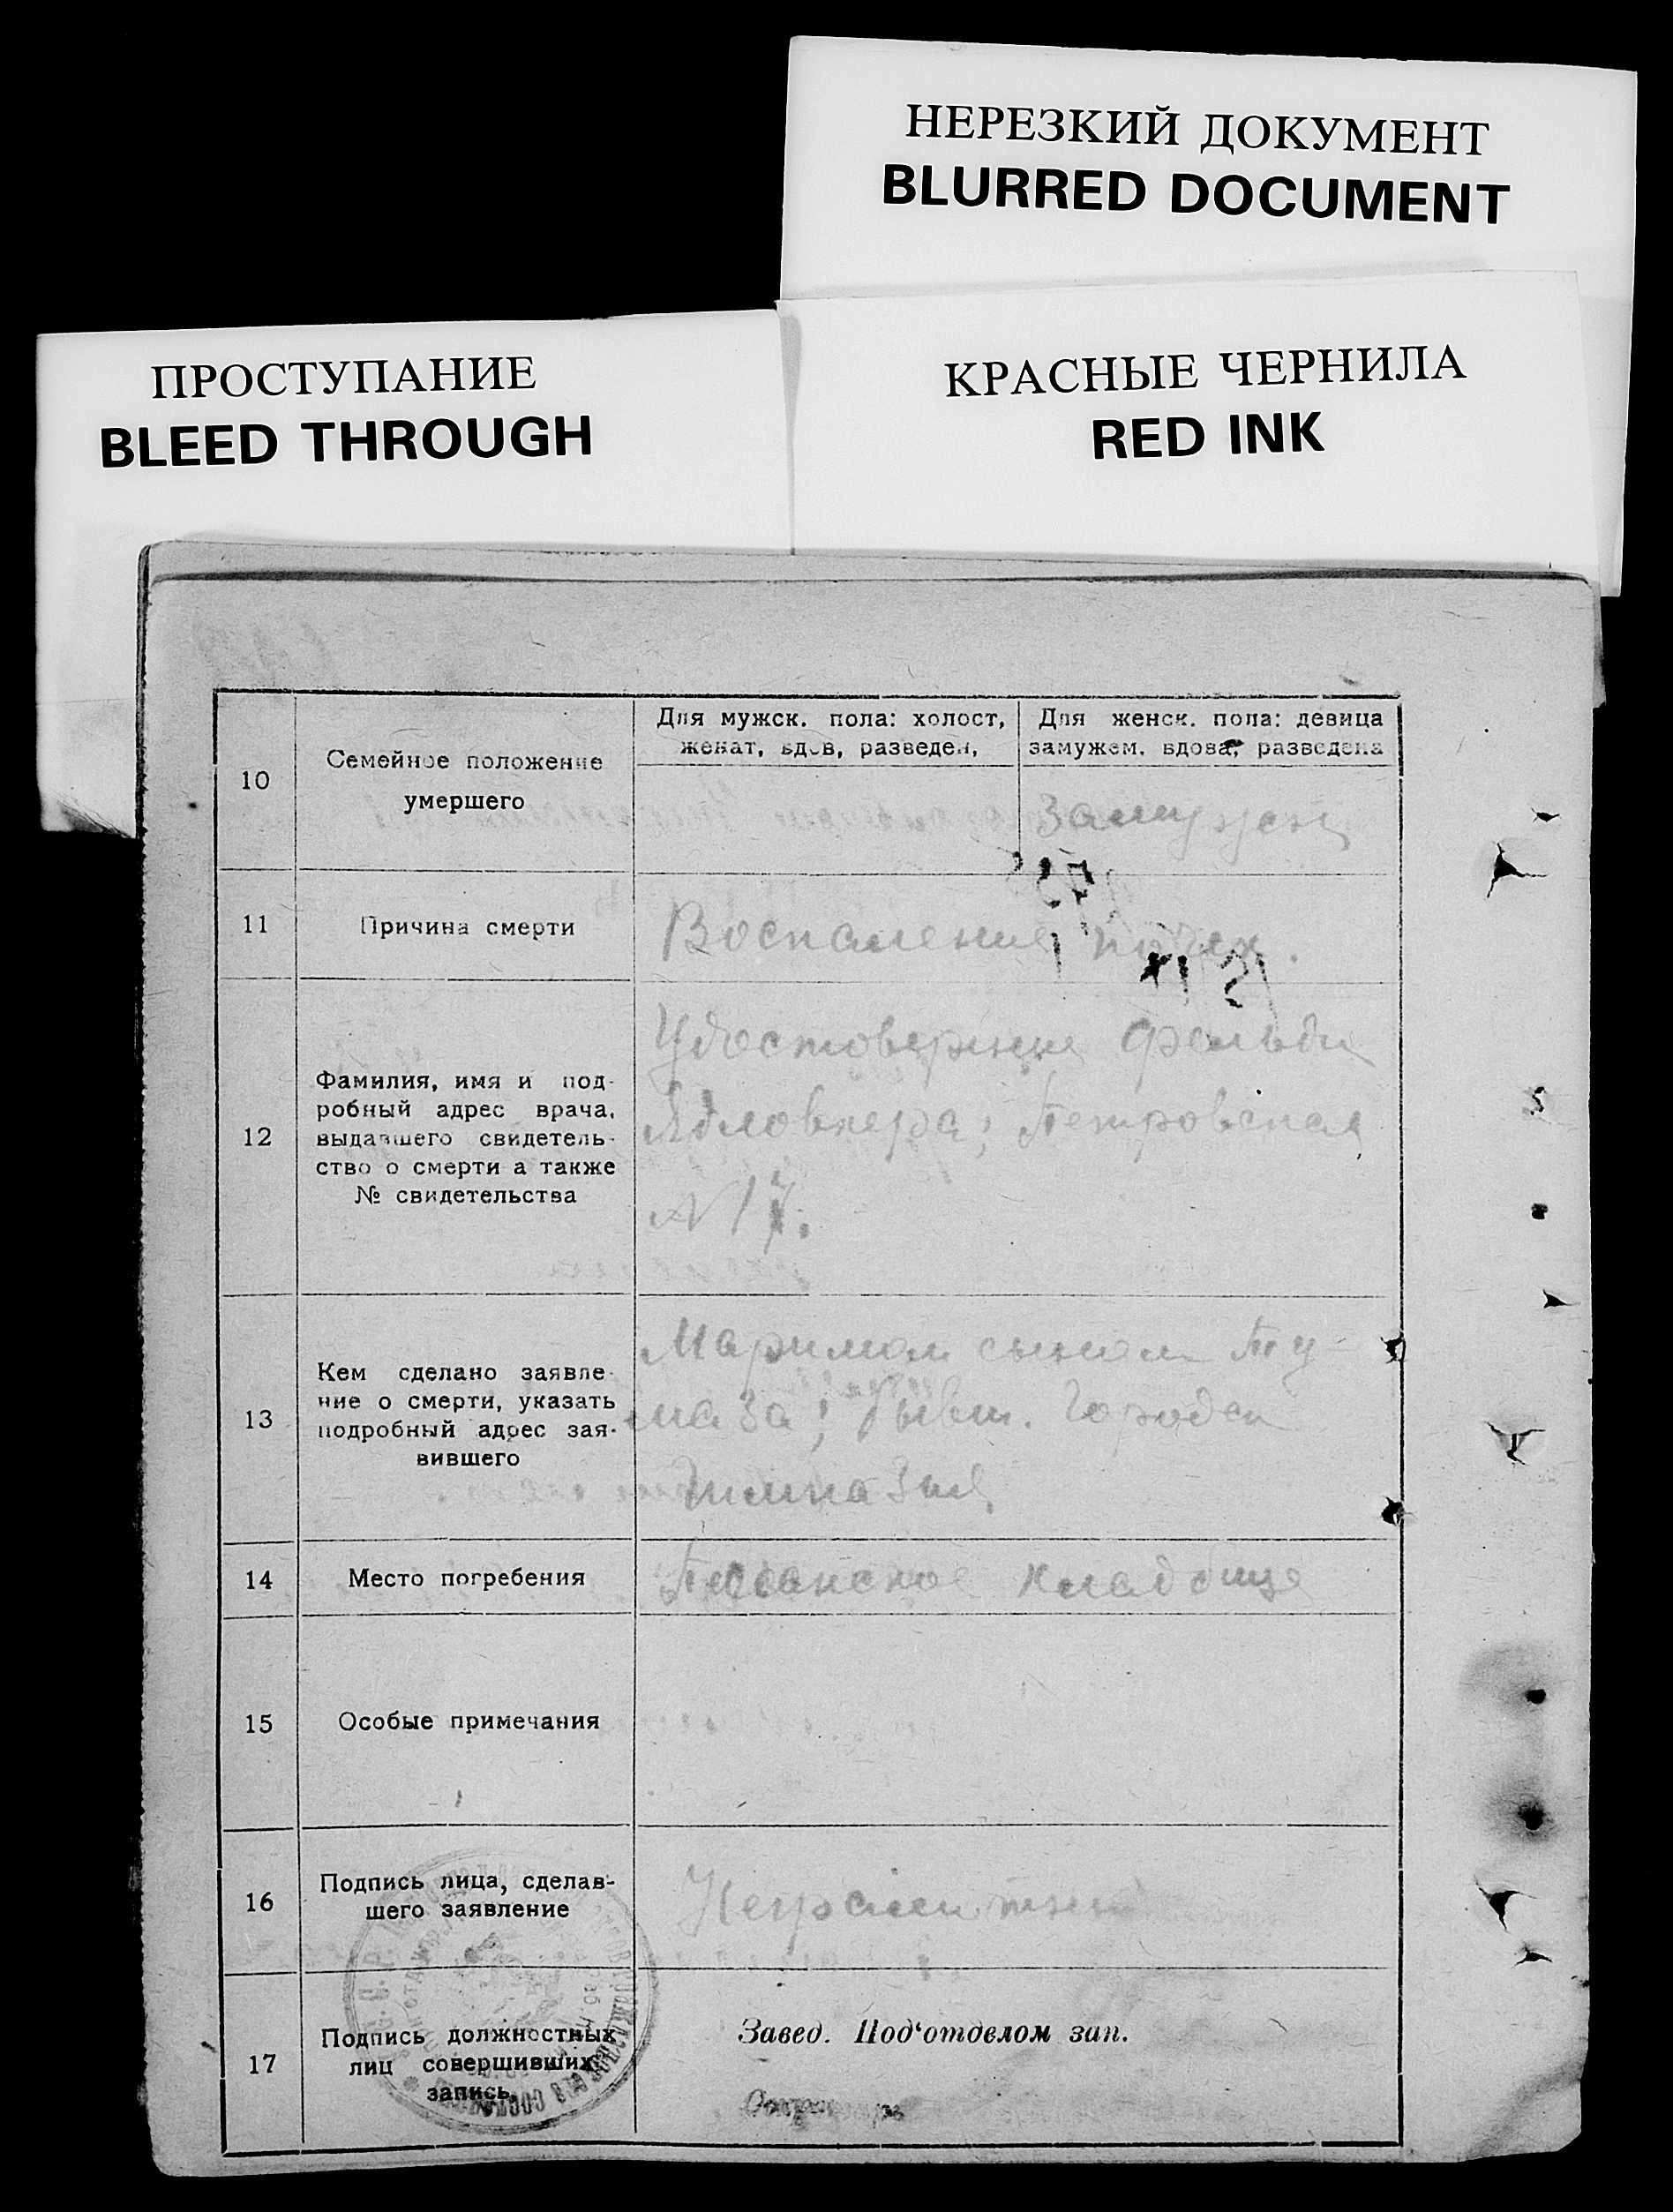 НЕРЕЗКИЙ ДОКУМЕНТ
BLURRED DOCUMENT
ПРОСТУПАНИЕ
BLEED THROUGH
КРАСНЫЕ ЧЕРНИЛА
RED INK
10
Семейное положение
умершего
Для мужск. пола: холост,
женат, вдов, разведен,
Для женск. пола: девица
замужем, вдова, разведена
Замужем
11
Причина смерти
Воспаление почек.
12
Фамилия, имя и под-
робный адрес врача,
выдавшего свидетель-
ство о смерти а также
№ свидетельства
Удостоверение
Петровская
N 17.
13
Кем сделано заявле-
ние о смерти, указать
подробный адрес зая-
вившего
сыном
Гимназия
14
Место погребения
кладбище
15
Особые примечания
16
Подпись лица, сделав-
шего заявление
Неграмотный
17
Подпись должностных
лиц совершивших
запись.
Завед. Под‘отделом зап.